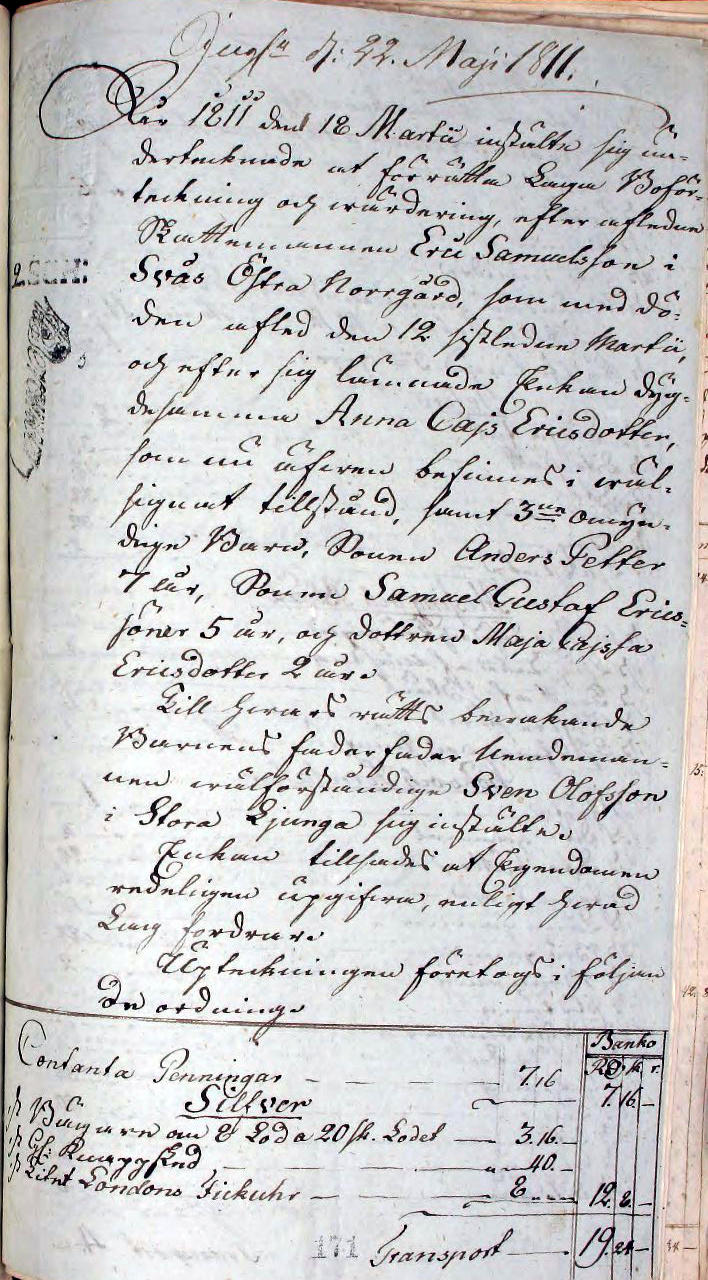 Ingifn d: 22. Maji 1811.
År 1811 den 18 Martii instälte sig un-
dertecknade at förrätta Laga Boför-
teckning och wärdering, efter aflednen
Skattemannen Eric Samuelsson i
Svås Östra Norrgård, som med dö-
2 SCHI:
den afled den 12 sistledne Martii,
och efter sig lämnade Enkan dyg-
desamma Anna Cajs Ericsdotter,
som nu äfwen befinnes i wäl-
signat tillstånd, samt 3ne omyn-
dige Barn, Sonen Anders Petter
7 år, Sonen Samuel Gustaf Erics-
söner 5 år, och dottren Maja Cajssa
Ericsdotter 2 år.
Till Hwars rätts bewakande
Barnens faderfader Nemdeman-
nen wälförståndige Sven Olofsson
i Stora Ljunga sig instälte.
Enkan tillsades at Egendomen
redeligen upgifwa, enligt hwad
Lag fordrar.
Upteckningen företogs i följan
de ordning.
Banko
Rd sk r.
Contanta Penningar — — — 7.16 7. 16. —
Silfver
1 st Bägare om 8 Lod a 20 sk. Lodet — 3.16. —
1 st Knappsked — — — 40. —
1 st Litet Londons Fickuhr — — 8. — 12. 8. —
171 Transport — 19. 24 —